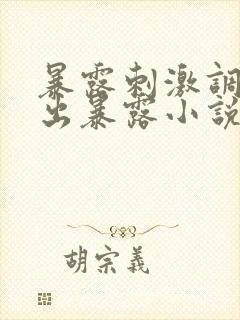 暴露刺激調
出暴露小說
胡宗義